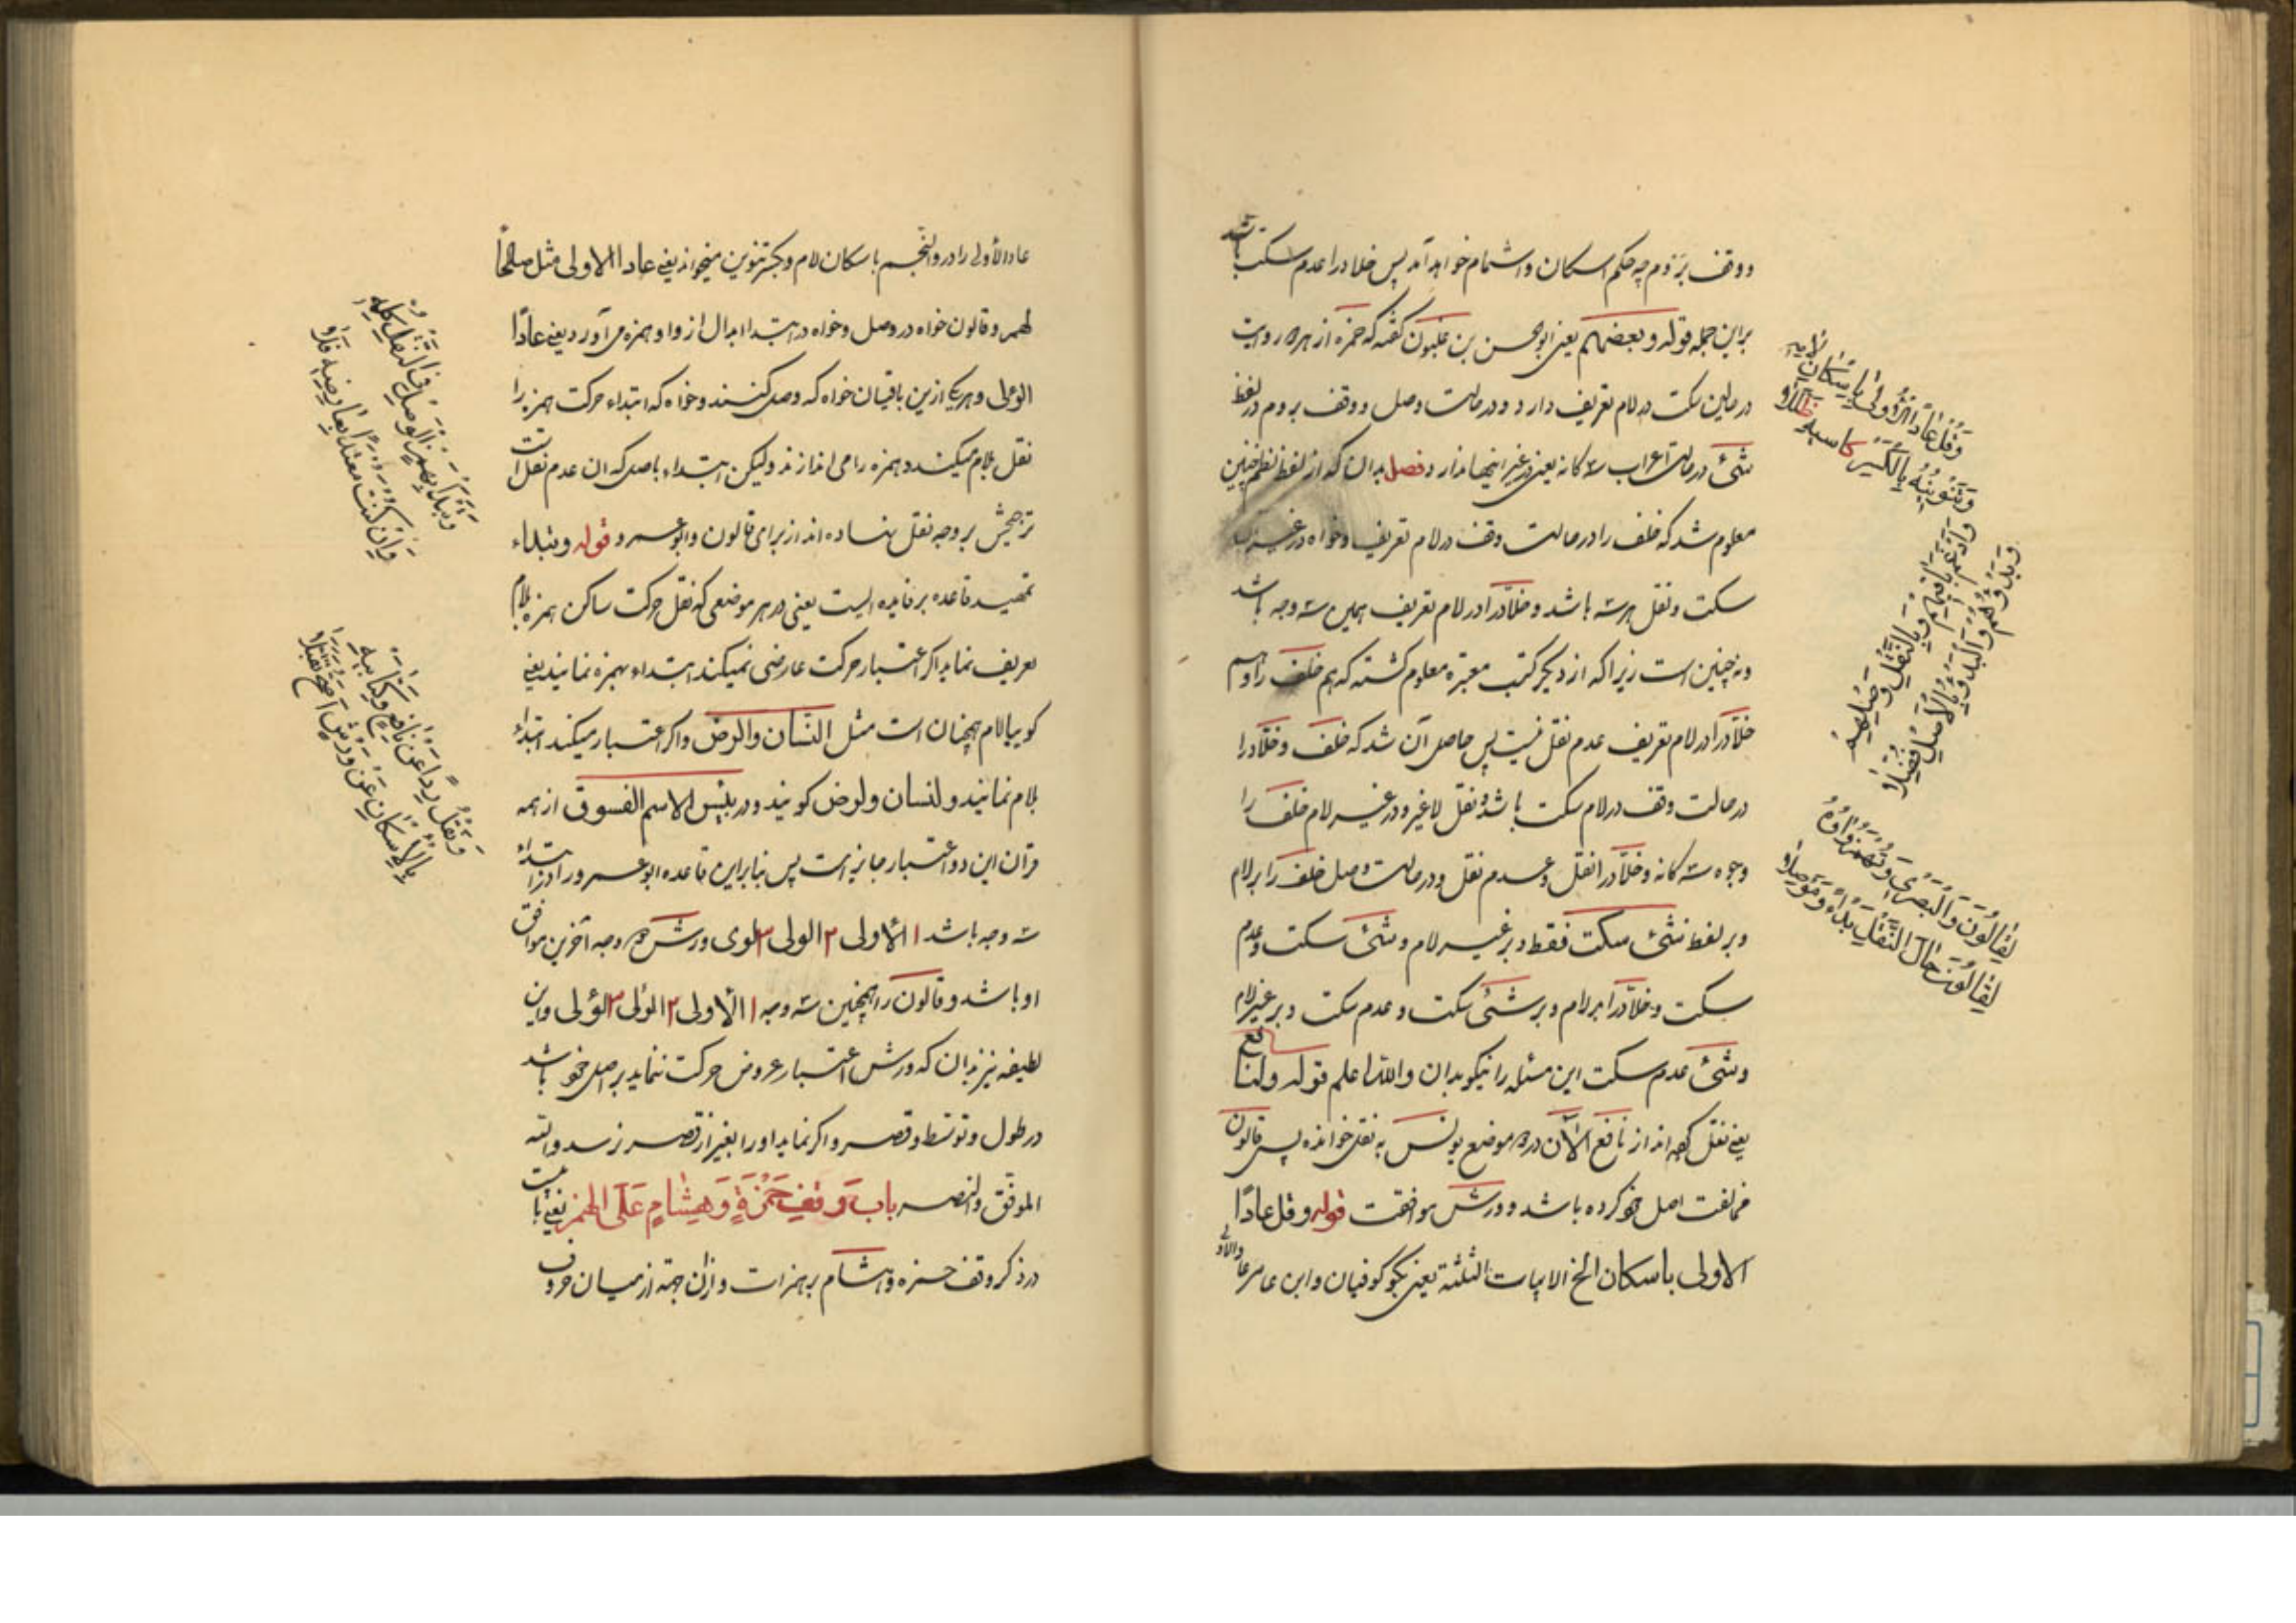 ووقف بر َوم چه حکم اسکان واشمام خواهد آمد پس خلاد را عدم سکت باشد
براین جمله قوله وبعضهم یعنی ابوالحسن بن غلبون گفته که حمزه از هر دو روایت
درحالین سکت در لام تعریف دارد ودر حالت وصل ووقف بروم در لفظ
شئ در حالت اعراب سه کانه یعنی در غیر اینها ندارد فصل بدان که از لفظ نظم چنین
معلوم شد که خلف را در حالت وقف در لام تعریف وخواه در غیر آن
سکت ونقل هر سه باشد وخلاد را در لام تعریف همین سه وجه باشد
ونه چنین است زیرا که از دیگر کتب معتبره معلوم کشته که هم خلف را وهم
خلاد را در لام تعریف عدم نقل نیست پس حاصل آن شد که خلف وخلاد را
در حالت وقف در لام سکت باشد ونقل لاغیر ودر غیر لام خلف را
وجوه سه کانه وخلاد را نقل وعدم نقل ودر حالت وصل خلف را بر لام
وبر لفظ شئ سکت فقط وبر غیر لام وشئ سکت وعدم
سکت وخلاد را بر لام وبر شئ سکت وعدم سکت وبر غیر لام
وشئ عدم سکت این مسئله را نیکو بدان والله اعلم قوله ولنافع
یعنی نقل کرده اند از نافع الآن در دو موضع یونس به نقل خوانده پس قالون
مخالفت اصل خود کرده باشد وورش موافقت قوله وقل عادًا
الاولی باسکان الخ الابیات الثلثة یعنی بگو کوفیان وابن عامر عادا الاولی
وَقُلْ عَادًا الْاُولٰی بِاِسْکَانِ لَامِهِ
وَتَنْوِینُهُ بِالْکَسْرِ کَاسِیهِ ظَلَّلَا
وَاَدْغَمَ بَاقِیهِمْ وَبِالنَّقْلِ وَصْلُهُمْ
وَبَدْؤُهُمْ وَالْبَدْؤُ بِالْاَصْلِ فُضِّلَا
لِقَالُونَ وَالْبَصْرِی وَتُهْمَزُ وَاوُهُ
لِقَالُونَ حَالَ النَّقْلِ بَدْءً وَمَوْصِلَا
عادا الأولی را در والنجم باسکان لام وبکسر تنوین میخوانند یعنی عادا الاولی مثل صالحًا
لهم وقالون خواه در وصل وخواه در ابتدا ابدال از واو همزه می آورد یعنی عادًا
الوءلی وهریک ازین باقیان خواه که وصل کنند وخواه که ابتداء حرکت همزه را
نقل بلام میکنند وهمزه را می اندازند ولیکن ابتداء باصل که ان عدم نقل است
ترجیحش بر وجه نقل نهاده اند از برای قالون وابوعمرو قوله وتبداء
تمهید قاعده بر فایده ایست یعنی در هر موضعی که نقل حرکت ساکن همزه بلام
تعریف نماید اکر اعتبار حرکت عارضی نمیکند ابتداء بهمزه نمایند یعنی
کویا لام همچنان است مثل النسان والرض واکر اعتبار میکند ابتداء
بلام نمانید ولنسان ولرض کویند ودر بئس الاسم الفسوق از همه
قرآن این دو اعتبار جایز است پس بنابراین قاعده ابوعمرو را در ابتداء
سه وجه باشد ۱ الأولی ۲ الولی ۳ لولی وورش دو وجه آخرین موافق
او باشد وقالون را همچنین سه وجه ۱ الأولی ۲ الؤلی ۳ لؤلی واین
لطیفه نیز بدان که ورش اعتبار عروض حرکت ننماید بر اصل خود باشد
در طول وتوسط وقصر واکر نماید اورا بغیر از قصر نرسد والله
الموفق والنصر بابَ وَقفِ حَمْزَةَ وَهِشَامٍ عَلَی الهَمْزِ یعنی بابیست
در ذکر وقف حمزه وهشام بر همزات وازان جهة از میان حروف
وَتَبْدَأُ بِهَمْزِ الْوَصْلِ فِی النَّقْلِ کُلِّهِ
وَاِنْ کُنْتَ مُعْتَدًّا بِعَارِضِهِ فَلَا
وَنَقْلُ رِدًا عَنْ نَافِعٍ وَکِتَابِیَهْ
بِالْاِسْکَانِ عَنْ وَرْشٍ اَصَحُّ تَقَبُّلَا